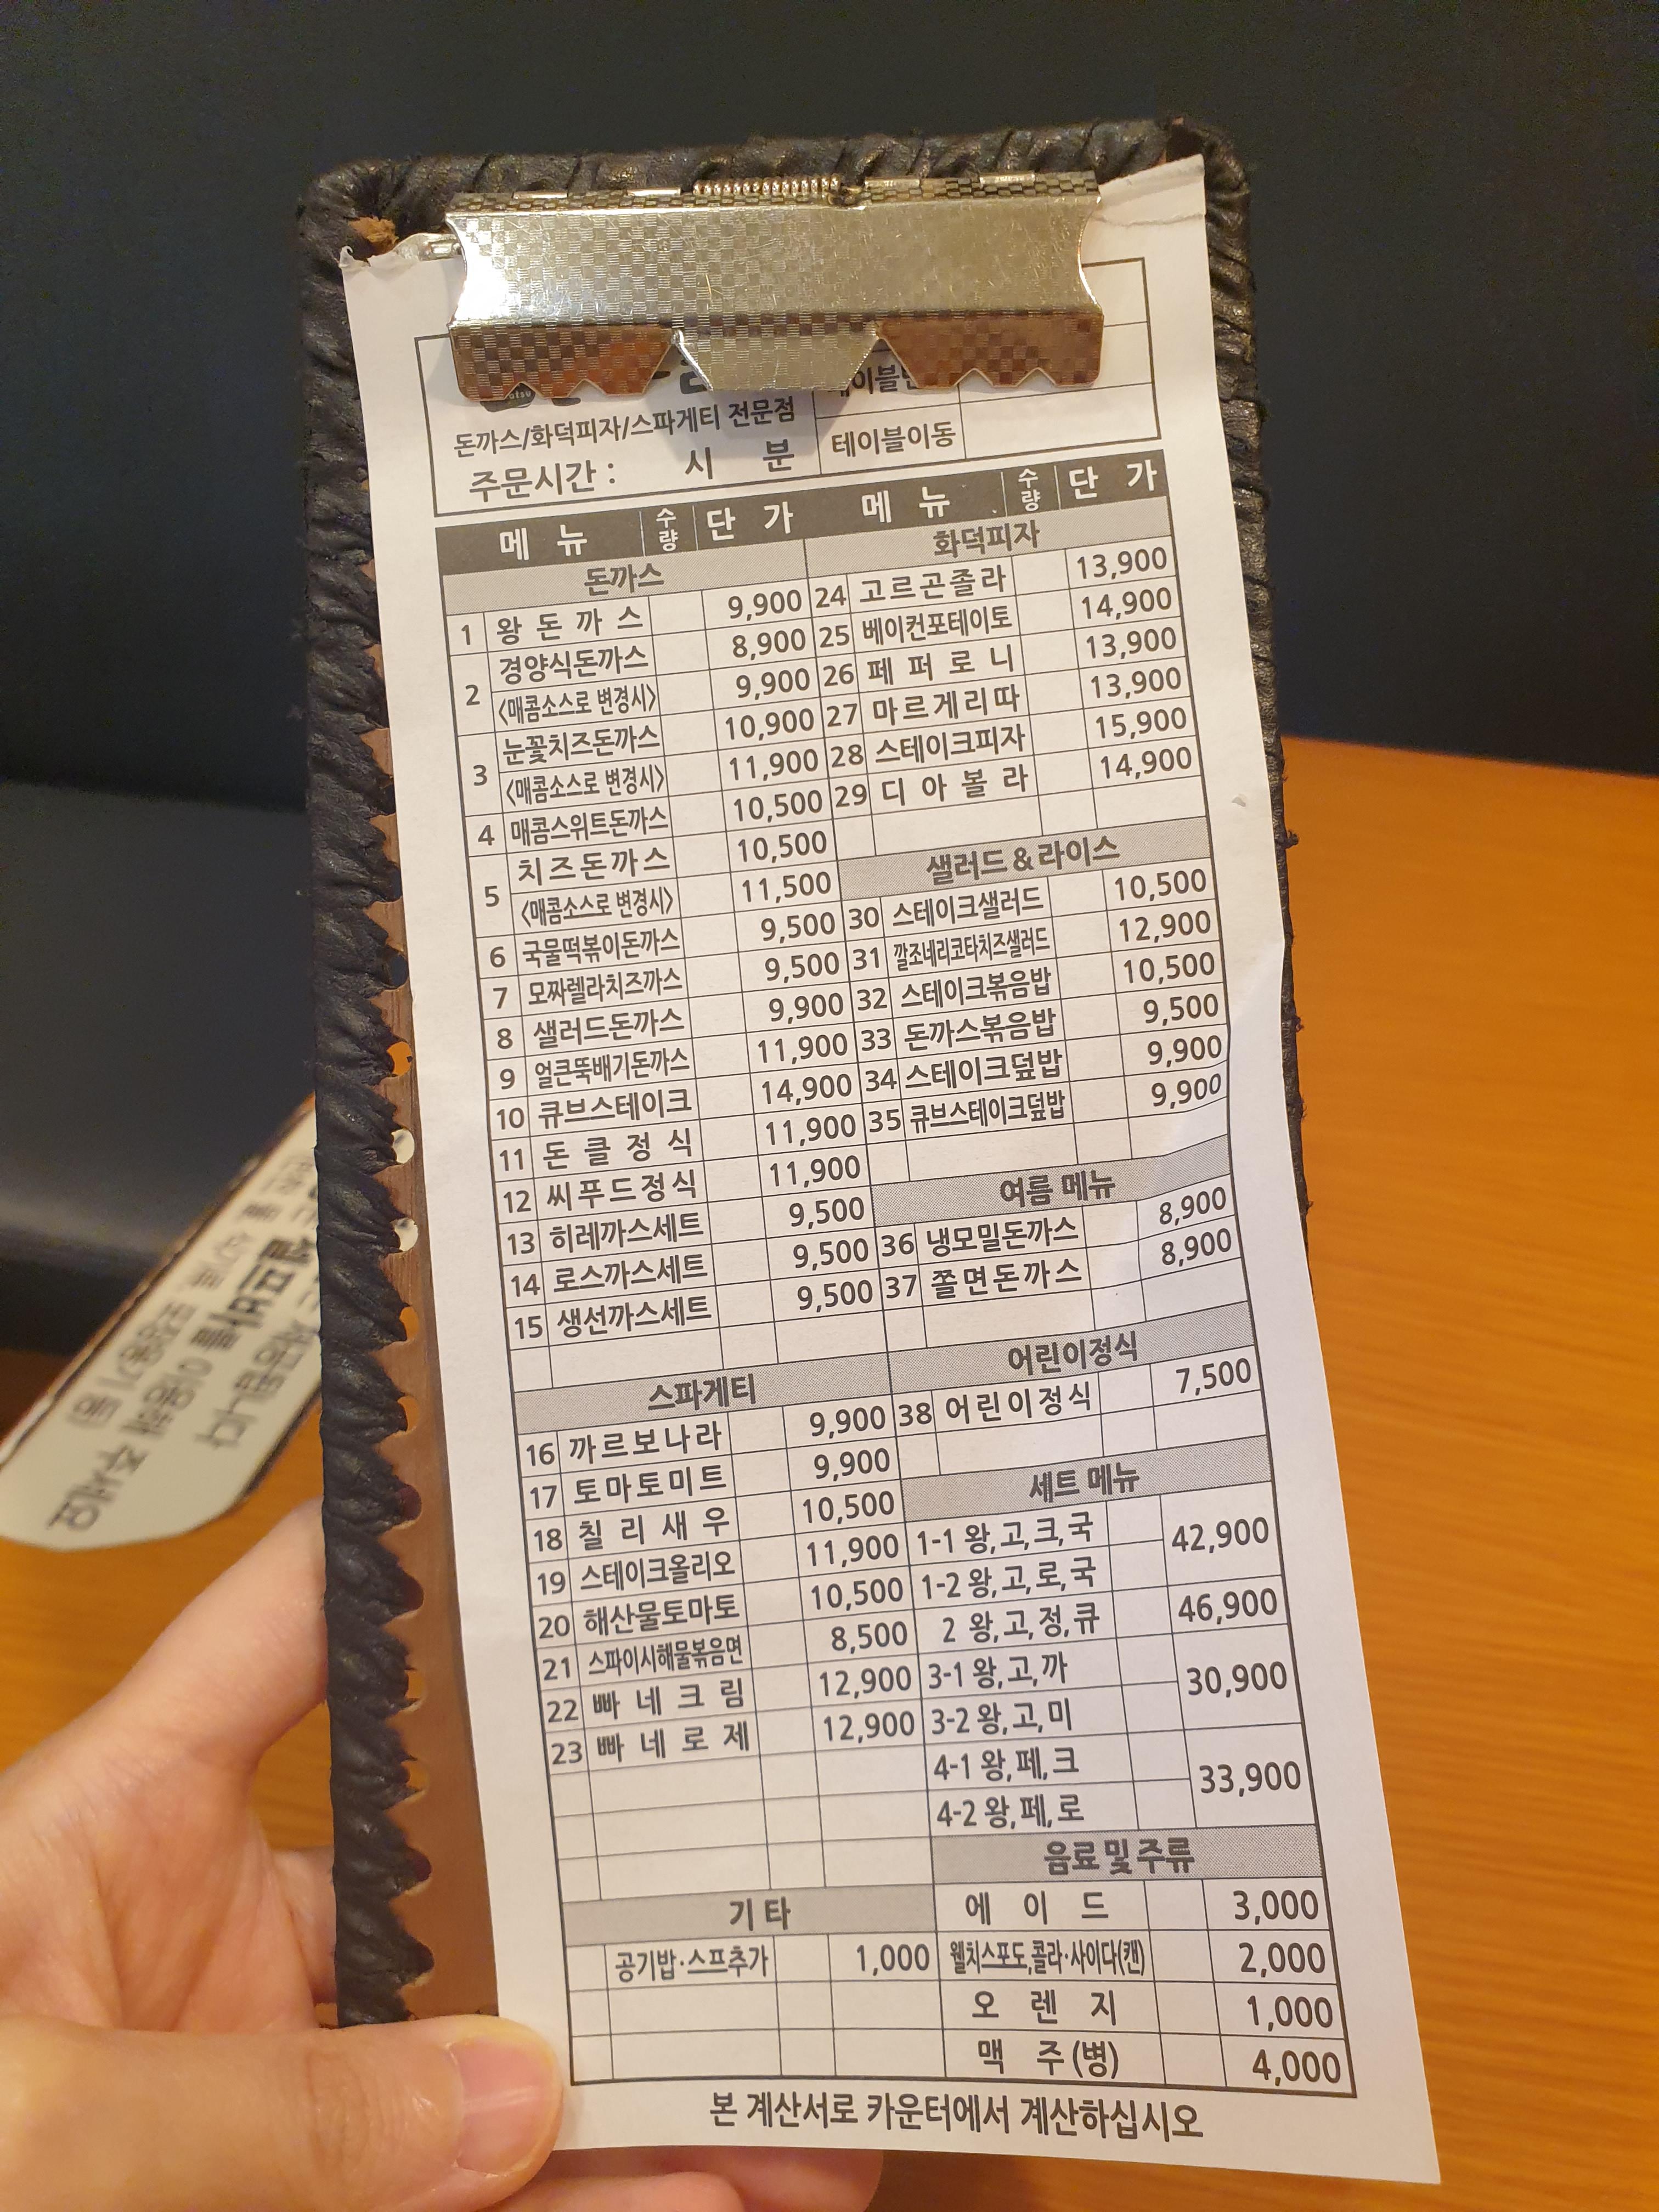 돈까스/화덕피자/스파게티 전문점
주문시간 : 시 분
테이블이동
메뉴 수량 단가 메뉴 수량 단가
돈까스
1 왕돈까스 9,900
2 경양식돈까스 8,900
<매콤소스로 변경시> 9,900
3 눈꽃치즈돈까스 10,900
<매콤소스로 변경시> 11,900
4 매콤스위트돈까스 10,500
5 치즈돈까스 10,500
<매콤소스로 변경시> 11,500
6 국물떡볶이돈까스 9,500
7 모짜렐라치즈까스 9,500
8 샐러드돈까스 9,900
9 얼큰뚝배기돈까스 11,900
10 큐브스테이크 14,900
11 돈클정식 11,900
12 씨푸드정식 11,900
13 히레까스세트 9,500
14 로스까스세트 9,500
15 생선까스세트 9,500
스파게티
16 까르보나라 9,900
17 토마토미트 9,900
18 칠리새우 10,500
19 스테이크올리오 11,900
20 해산물토마토 10,500
21 스파이시해물볶음면 8,500
22 빠네크림 12,900
23 빠네로제 12,900
기타
공기밥·스프추가 1,000
화덕피자
24 고르곤졸라 13,900
25 베이컨포테이토 14,900
26 페퍼로니 13,900
27 마르게리따 13,900
28 스테이크피자 15,900
29 디아볼라 14,900
샐러드&라이스
30 스테이크샐러드 10,500
31 깔조네리코타치즈샐러드 12,900
32 스테이크볶음밥 10,500
33 돈까스볶음밥 9,500
34 스테이크덮밥 9,900
35 큐브스테이크덮밥 9,900
여름 메뉴
36 냉모밀돈까스 8,900
37 쫄면돈까스 8,900
어린이정식
38 어린이정식 7,500
세트 메뉴
1-1 왕,고,크,국 42,900
1-2 왕,고,로,국
2 왕,고,정,큐 46,900
3-1 왕,고,까 30,900
3-2 왕,고,미
4-1 왕,페,크 33,900
4-2 왕,페,로
음료 및 주류
에이드 3,000
웰치스포도,콜라·사이다(캔) 2,000
오렌지 1,000
맥주(병) 4,000
본 계산서로 카운터에서 계산하십시오
셀프바를 이용해 주세요